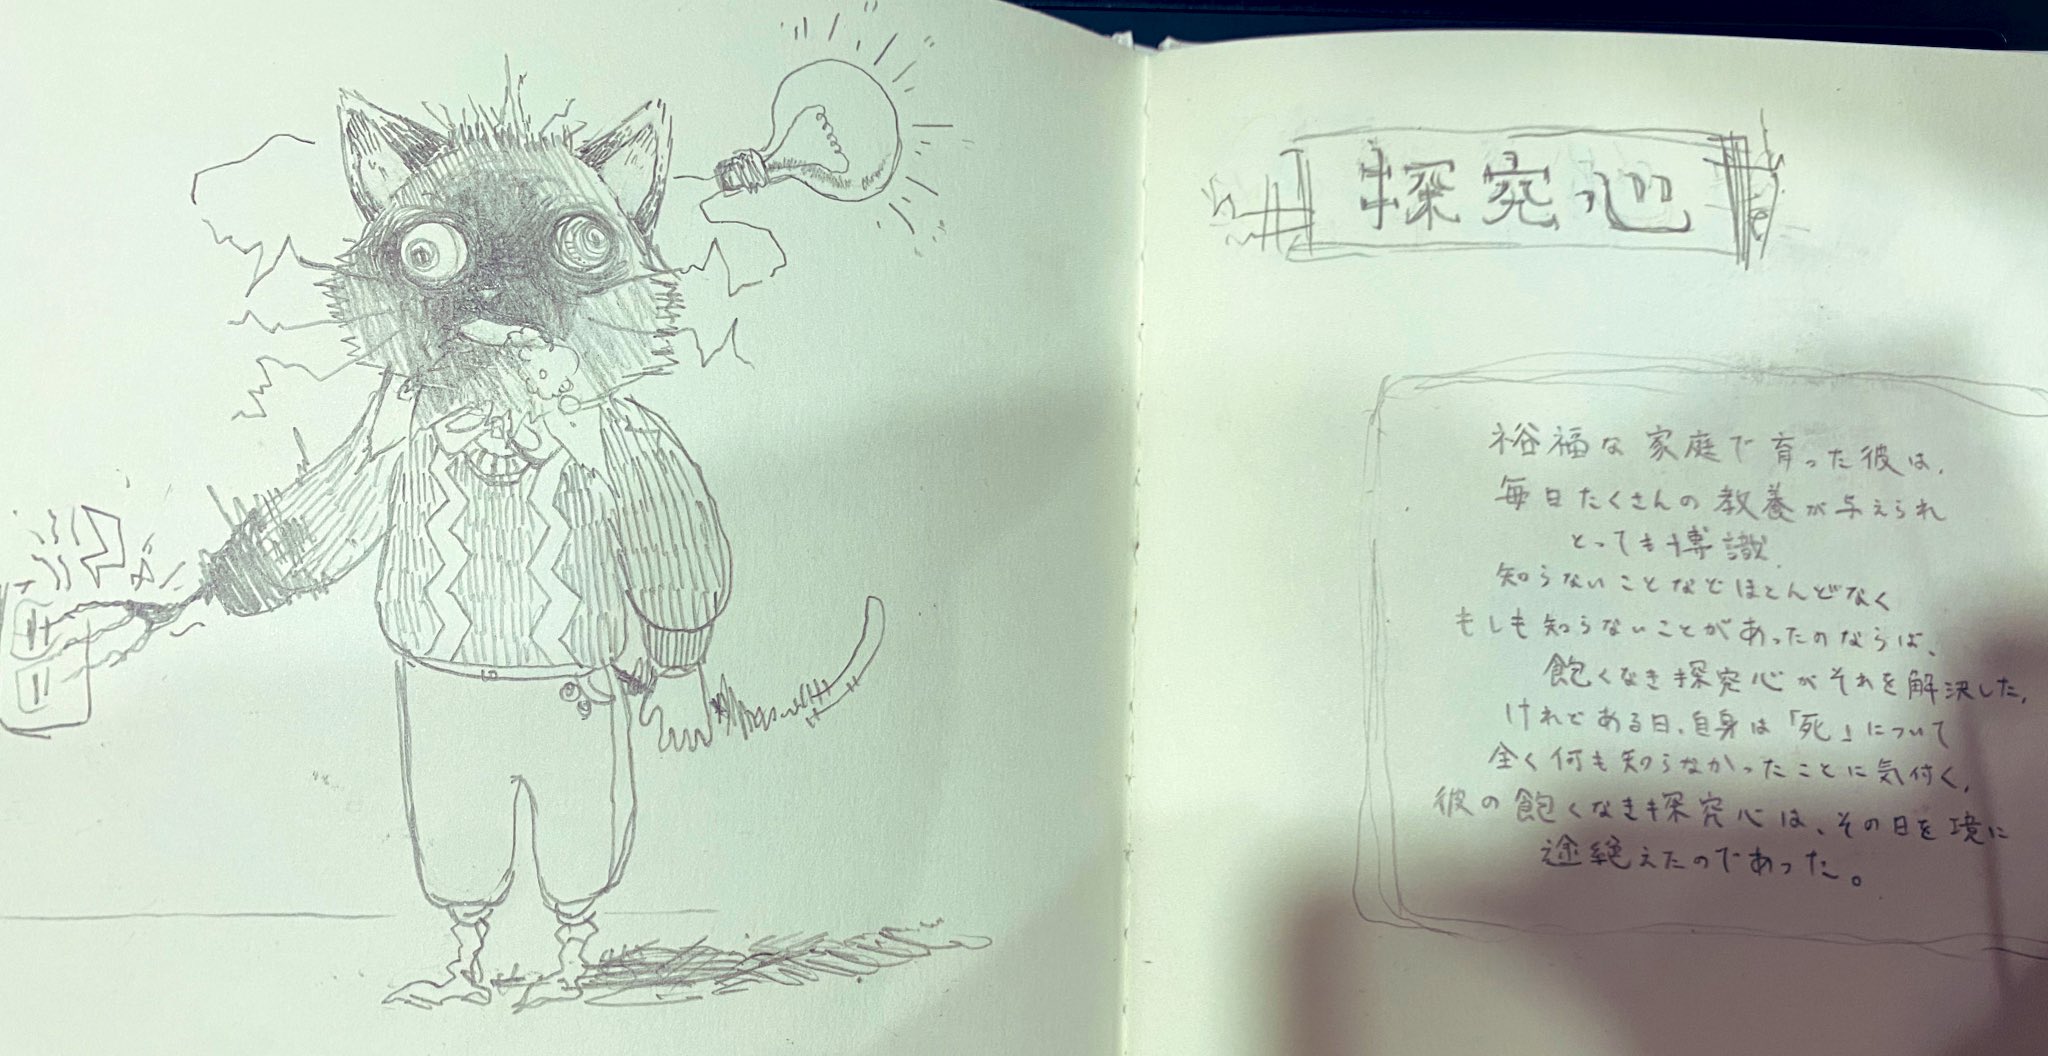 探究心
裕福な家庭で育った彼は、
毎日たくさんの教養が与えられ
とっても博識。
知らないことなどほとんどなく
もしも知らないことがあったのならば、
飽くなき探究心がそれを解決した。
けれどある日、自身は「死」について
全く何も知らなかったことに気付く。
彼の飽くなき探究心は、その日を境に
途絶えたのであった。